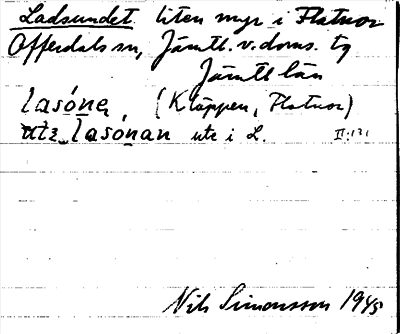 Ladsundet. liten myr i Flatnor
Offerdals sn, Jämtl. v. doms. tg
Jämtl län
lasóne̱, (Kläppen, Flatnor)
lasóna̱n ute i L. II:131
Nils Simonsson 1945